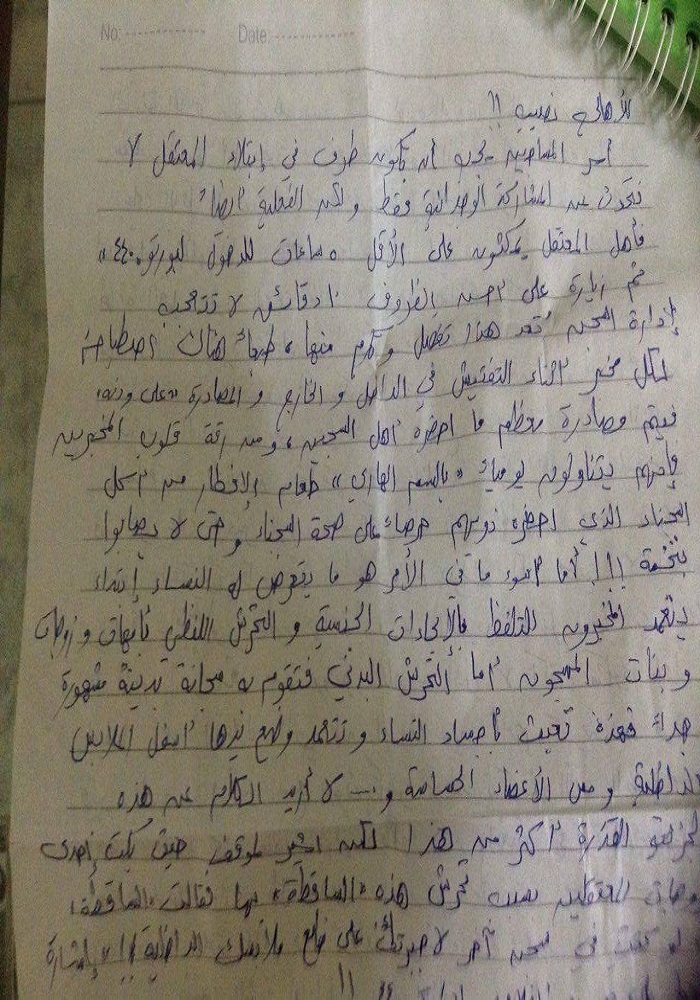 No: Date:
للأهالي نصيب !!
أسر المساجين يجب أن تكون طرف في إبتلاء المعتقل لا
نتحدث عن المشاركة الوجدانية فقط ولكن الفعلية أيضاً
فأهل المعتقل يمكثون على الأقل ساعات للدخول
ثم زيارة على أحسن الظروف 10 دقائق لا تتعجب
إدارة السجن تعد هذا تفضل وكرم منها، طبعاً هناك
لكل مخبر أثناء التفتيش في الداخل و الخارج و المصادرة «على ودنه»
فيتم مصادرة معظم ما احضره أهل السجين، ومن رقة قلوب المخبرين
فإنهم يتناولون يومياً «بالسم الهاري» طعام الإفطار من أكل
السجناء الذي احضره ذويهم حرصاً على صحة السجناء وحتى لا يصابوا
بتخمة !!! أما أسوء ما في الأمر هو ما يتعرض له النساء إبتداء
يتعمد المخبرون التلفظ بالإيحاءات الجنسية و التحرش اللفظي بأمهات وزوجات
و بنات المسجون أما التحرش البدني فتقوم به سجانة بدينة مشهورة
جداً فهذه تعبث بأجساد النساء و تتعمد وضع يدها أسفل الملابس
الداخلية ومس الأعضاء الحساسة و... لا أريد الكلام عن هذه
القذرة أكثر من هذا لكن أشير لموقف حيث بكت إحدى
زوجات المعتقلين بسبب تحرش هذه «الساقطة» بها فقالت «الساقطة»
لو كنت في سجن آخر لأجبرتك على خلع ملابسك الداخلية !! بإشارة